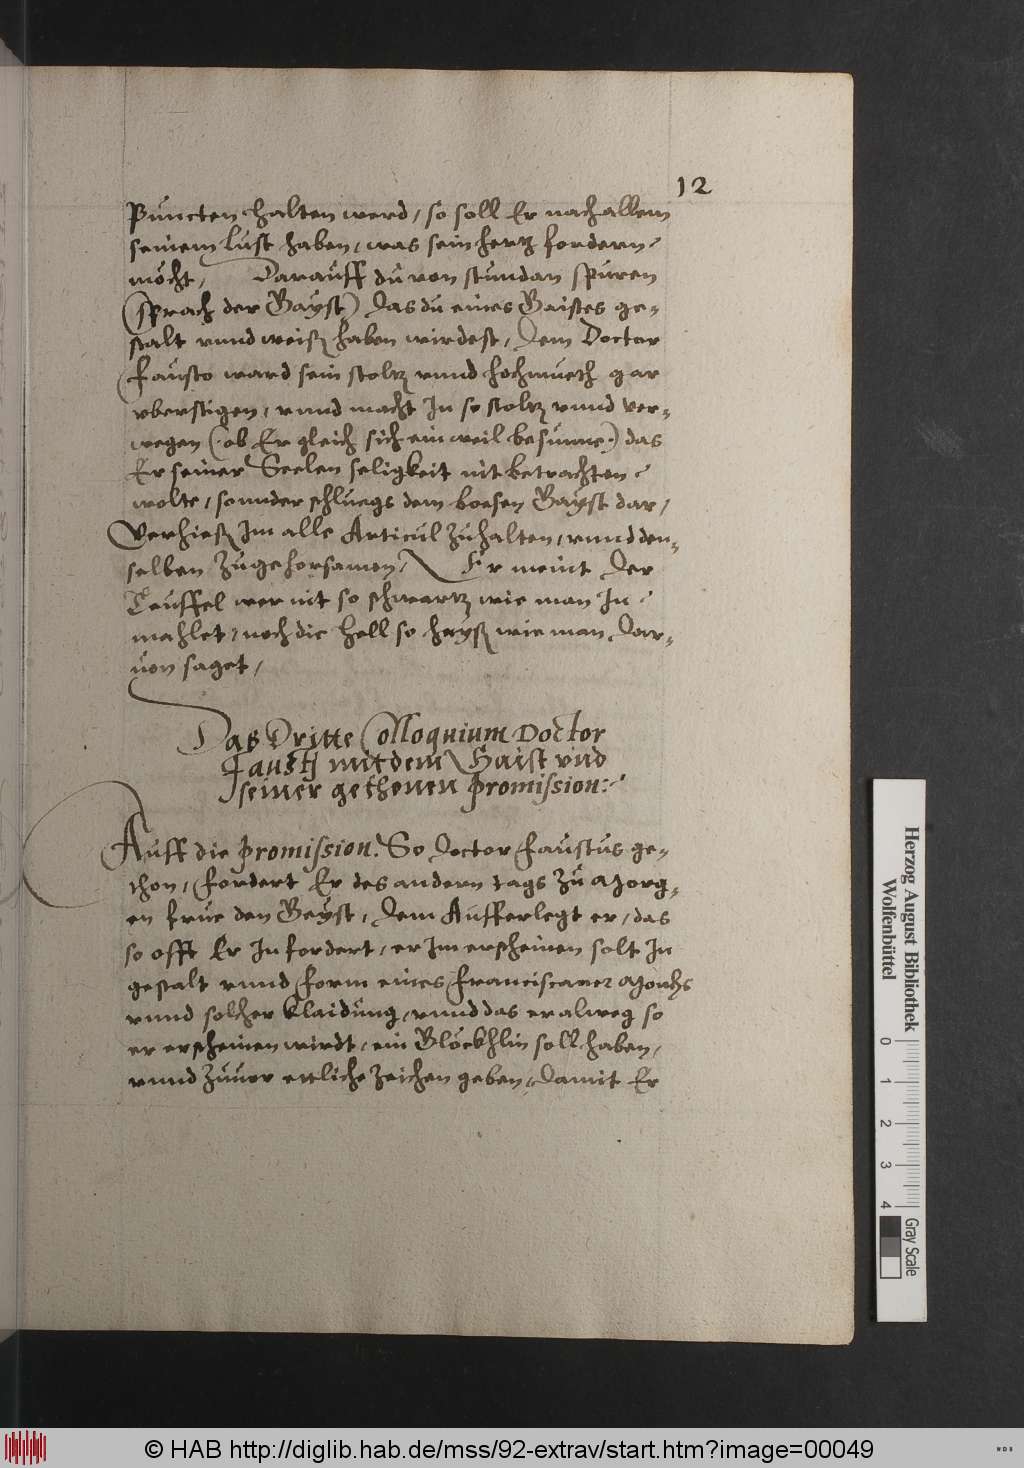 12
Puncten halten werd, so soll Er nach allem
seinem lust haben, was sein hertz fordern
möcht, Darauff du von stundan spüren
(sprach der Gayst) das du eines Gaistes ge-
stalt vnnd weiß haben wirdest, dem Doctor
Fausto ward sein stoltz vnnd hochmueth gar
vberstigen, vnnd macht In so stoltz vnnd ver-
wegen (ob Er gleich sich ein weil besunne) das
Er seiner Seelen seligkeit nit betrachten
wolte, sonnder schluegs dem boesen Gayst dar,
Verhieß Im alle Articul zuhalten, vnnd den-
selben zugehorsamen, Er meint der
Teuffel wer nit so schwartz wie man In
mahlet, noch die hell so hayß wie man dar-
von saget,
Das Dritte Colloquium Doctor
Faustj mit dem Gaist vnd
seiner gethonen promission:
Auff die promission. So doctor Faustus ge-
thon, fordert Er des andern tags zu Morg-
en frue den Geyst, dem Aufferlegt er, das
so offt Er In fordert, er Im erscheinen solt In
gestalt vnnd form eines Franciscaner Monchs
vnnd solcher klaidung, vnnd das er alweg so
er erscheinen wirdt, ein Glöckhlin soll haben,
vnnd zuuor ettliche zeichen geben, damit Er
Herzog August Bibliothek
Wolfenbüttel
0 1 2 3 4
Gray Scale
© HAB http://diglib.hab.de/mss/92-extrav/start.htm?image=00049